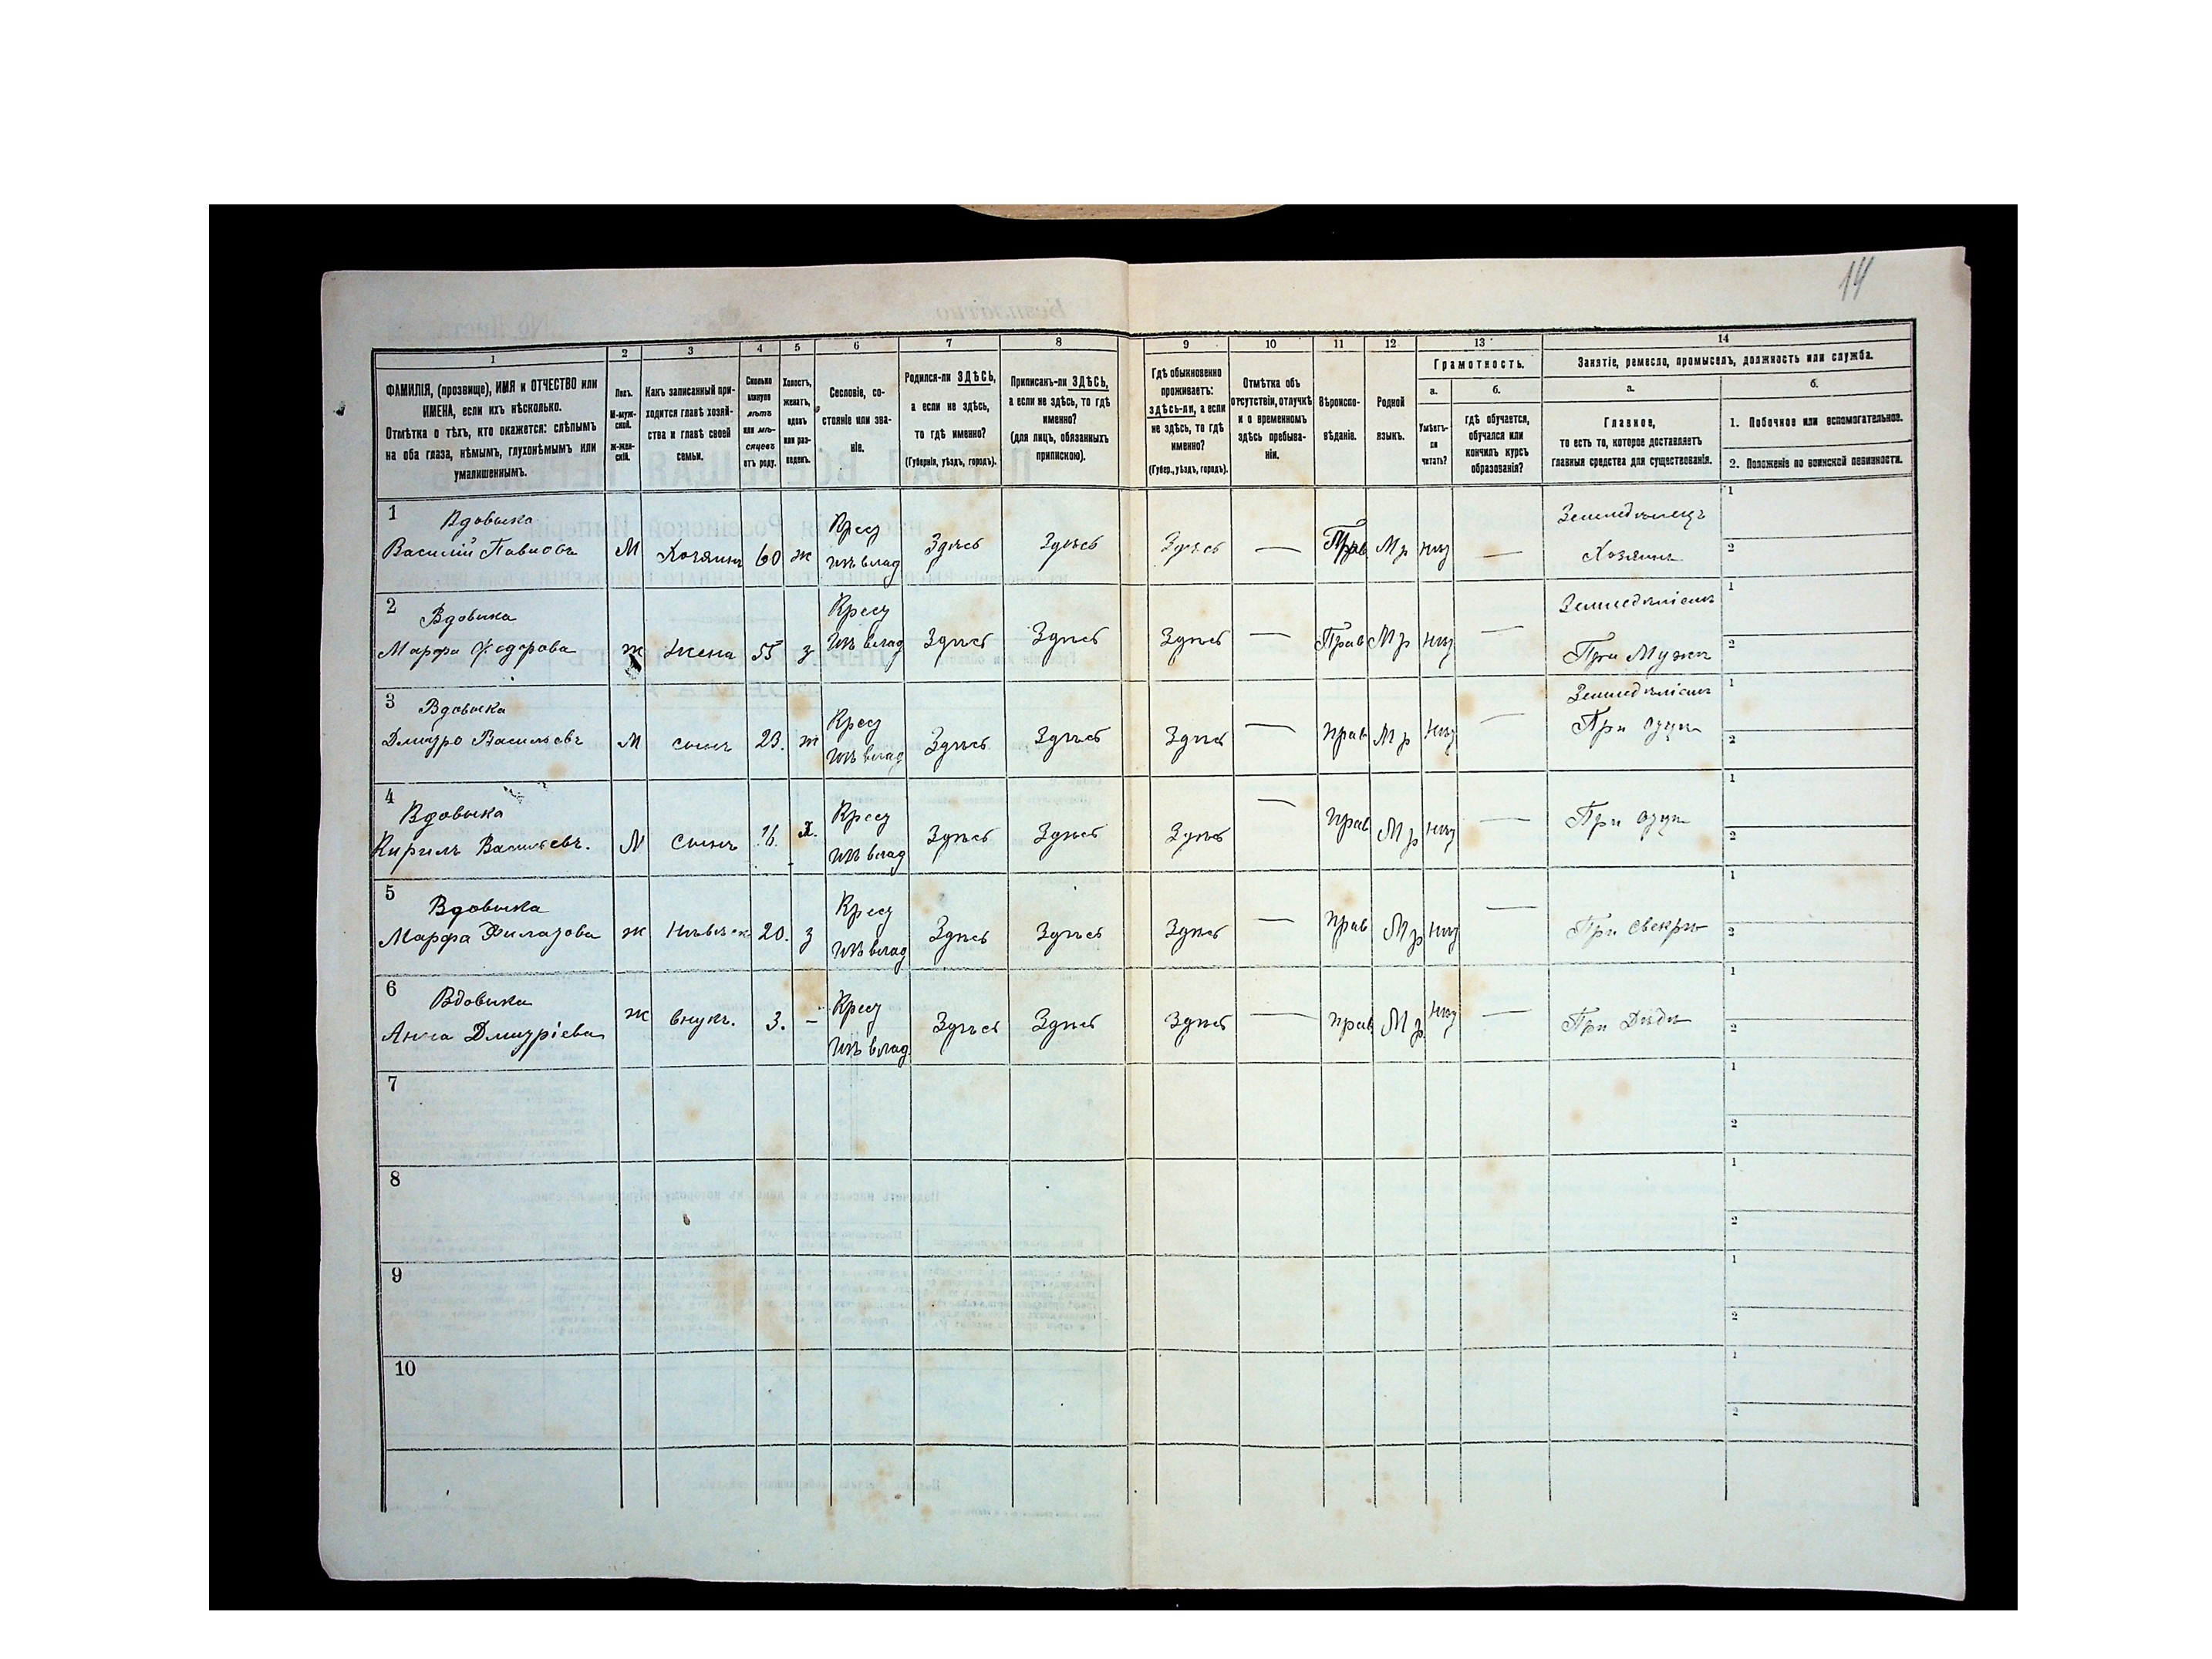 14
1 2 3 4 5 6 7 8 9 10 11 12 13 14
ФАМИЛІЯ, (прозвище), ИМЯ и ОТЧЕСТВО или
ИМЕНА, если ихъ нѣсколько.
Отмѣтка о тѣхъ, кто окажется: слѣпымъ
на оба глаза, нѣмымъ, глухонѣмымъ или
умалишеннымъ.
Полъ.
М-муж-
ской.
Ж-жен-
скій.
Какъ записанный при-
ходится главѣ хозяй-
ства и главѣ своей
семьи.
Сколько
минуло
лѣтъ
или мѣ-
сяцевъ
отъ роду.
Холостъ,
женатъ,
вдовъ
или раз-
веденъ.
Сословіе, со-
стояніе или зва-
ніе.
Родился-ли ЗДѢСЬ,
а если не здѣсь,
то гдѣ именно?
(Губернія, уѣздъ, городъ).
Приписанъ-ли ЗДѢСЬ,
а если не здѣсь, то гдѣ
именно?
(для лицъ, обязанныхъ
припискою).
Гдѣ обыкновенно
проживаетъ:
ЗДѢСЬ-ли, а если
не здѣсь, то гдѣ
именно?
(Губер., уѣздъ, городъ).
Отмѣтка объ
отсутствіи, отлучкѣ
и о временномъ
здѣсь пребыва-
ніи.
Вѣроиспо-
вѣданіе.
Родной
языкъ.
Грамотность.
а.
Умѣетъ-
ли
читать?
б.
гдѣ обучается,
обучался или
кончилъ курсъ
образованія?
Занятіе, ремесло, промыселъ, должность или служба.
а.
Главное,
то есть то, которое доставляетъ
главныя средства для существованія.
б.
1. Побочное или вспомогательное.
2. Положеніе по воинской повинности.
1 Вдовыка Кресц Земледѣлецъ 1
Василій Павловъ М Хозяинъ 60 ж изъ влад Здѣсь Здѣсь Здѣсь — Прав Мр нѣт — Хозяинъ 2
2 Вдовыка Кресц Земледѣліемъ 1
Марфа Ѳедорова ж жена 55 з изъ влад Здѣсь Здѣсь Здѣсь — Прав Мр нѣт — При Мужѣ 2
3 Вдовыка Кресц Земледѣліемъ 1
Дмитро Васильевъ М сынъ 23. ж изъ влад Здѣсь Здѣсь Здѣсь — Прав Мр нѣт — При отцѣ 2
4 Вдовыка Кресц 1
Кирилъ Васильевъ. М сынъ 16. х. изъ влад Здѣсь Здѣсь Здѣсь — Прав Мр нѣт — При отцѣ 2
5 Вдовыка Кресц 1
Марфа Филатова ж 20. з изъ влад Здѣсь Здѣсь Здѣсь — Прав Мр нѣт — При свекрѣ 2
6 Вдовыка Кресц 1
Анна Дмитріева ж внук. 3. — изъ влад. Здѣсь Здѣсь Здѣсь — Прав Мр нѣт — При Дѣдѣ 2
7 1
2
8 1
2
9 1
2
10 1
2